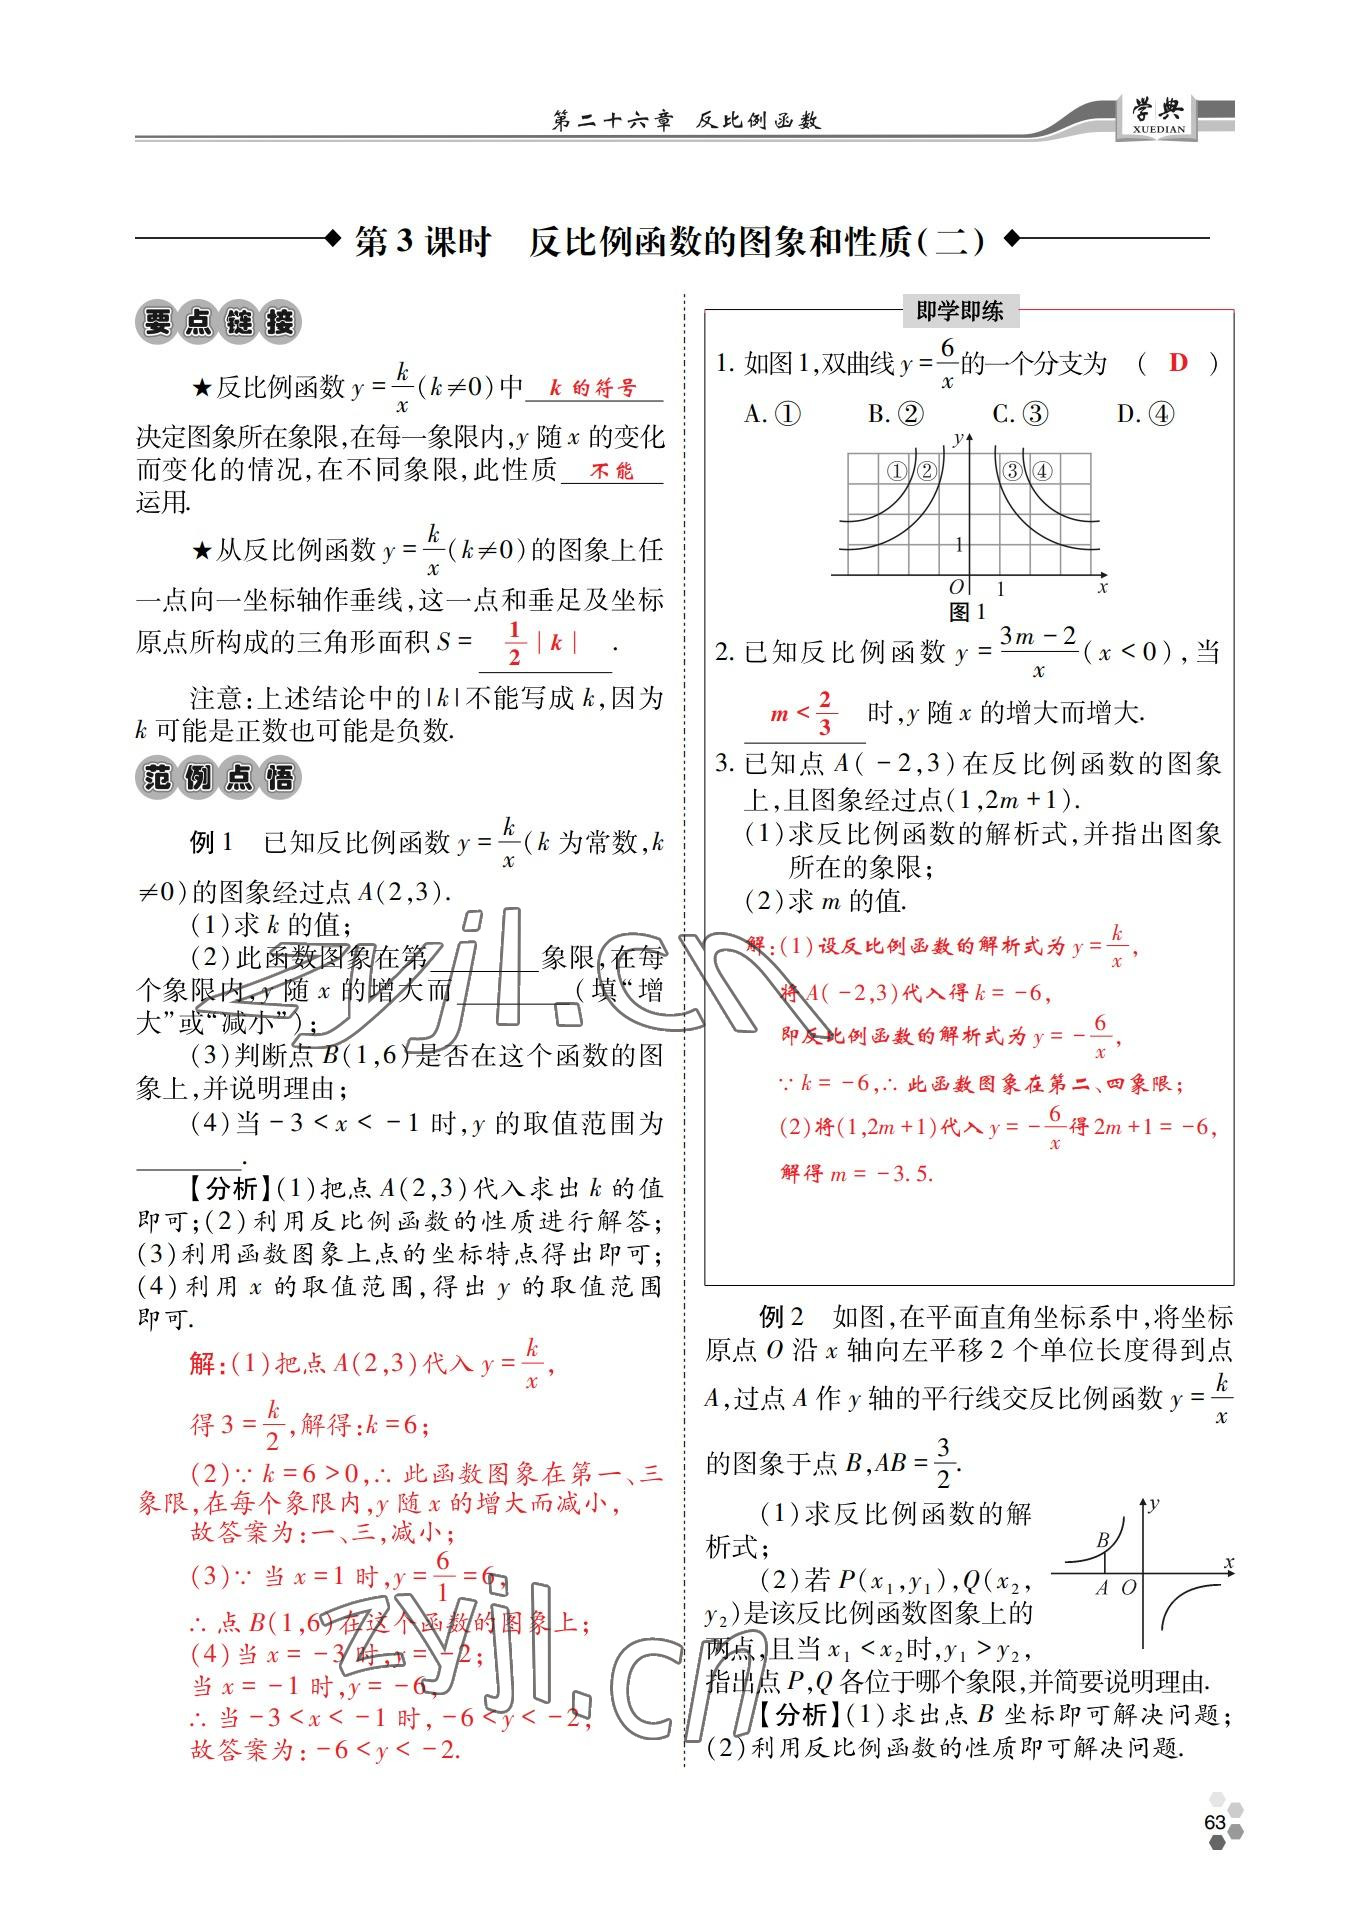 第二十六章 反比例函数
学典
XUEDIAN
第3课时 反比例函数的图象和性质(二)
要点链接
★反比例函数 y=k/x(k≠0)中 k的符号
决定图象所在象限,在每一象限内,y随x的变化
而变化的情况,在不同象限,此性质 不能
运用.
★从反比例函数 y=k/x(k≠0)的图象上任
一点向一坐标轴作垂线,这一点和垂足及坐标
原点所构成的三角形面积S= 1/2|k| .
注意:上述结论中的|k|不能写成k,因为
k可能是正数也可能是负数.
范例点悟
例1 已知反比例函数 y=k/x(k为常数,k
≠0)的图象经过点A(2,3).
(1)求k的值;
(2)此函数图象在第______象限,在每
个象限内,y随x的增大而______(填“增
大”或“减小”);
(3)判断点B(1,6)是否在这个函数的图
象上,并说明理由;
(4)当-3<x<-1时,y的取值范围为
______.
【分析】(1)把点A(2,3)代入求出k的值
即可;(2)利用反比例函数的性质进行解答;
(3)利用函数图象上点的坐标特点得出即可;
(4)利用x的取值范围,得出y的取值范围
即可.
解:(1)把点A(2,3)代入y=k/x,
得3=k/2,解得:k=6;
(2)∵k=6>0,∴此函数图象在第一、三
象限,在每个象限内,y随x的增大而减小,
故答案为:一、三,减小;
(3)∵当x=1时,y=6/1=6,
∴点B(1,6)在这个函数的图象上;
(4)当x=-3时,y=-2;
当x=-1时,y=-6,
∴当-3<x<-1时,-6<y<-2,
故答案为:-6<y<-2.
即学即练
1. 如图1,双曲线y=6/x的一个分支为 ( D )
A.① B.② C.③ D.④
y
① ② ③ ④
1
O 1 x
图1
2. 已知反比例函数 y=(3m-2)/x(x<0),当
m<2/3 时,y随x的增大而增大.
3. 已知点A(-2,3)在反比例函数的图象
上,且图象经过点(1,2m+1).
(1)求反比例函数的解析式,并指出图象
所在的象限;
(2)求m的值.
解:(1)设反比例函数的解析式为y=k/x,
将A(-2,3)代入得k=-6,
即反比例函数的解析式为y=-6/x,
∵k=-6,∴此函数图象在第二、四象限;
(2)将(1,2m+1)代入y=-6/x得2m+1=-6,
解得m=-3.5.
例2 如图,在平面直角坐标系中,将坐标
原点O沿x轴向左平移2个单位长度得到点
A,过点A作y轴的平行线交反比例函数y=k/x
的图象于点B,AB=3/2.
(1)求反比例函数的解
析式;
(2)若P(x₁,y₁),Q(x₂,
y₂)是该反比例函数图象上的
两点,且当x₁<x₂时,y₁>y₂,
指出点P,Q各位于哪个象限,并简要说明理由.
y
B
x
A O
【分析】(1)求出点B坐标即可解决问题;
(2)利用反比例函数的性质即可解决问题.
zyjl.cn
zyjl.cn
63